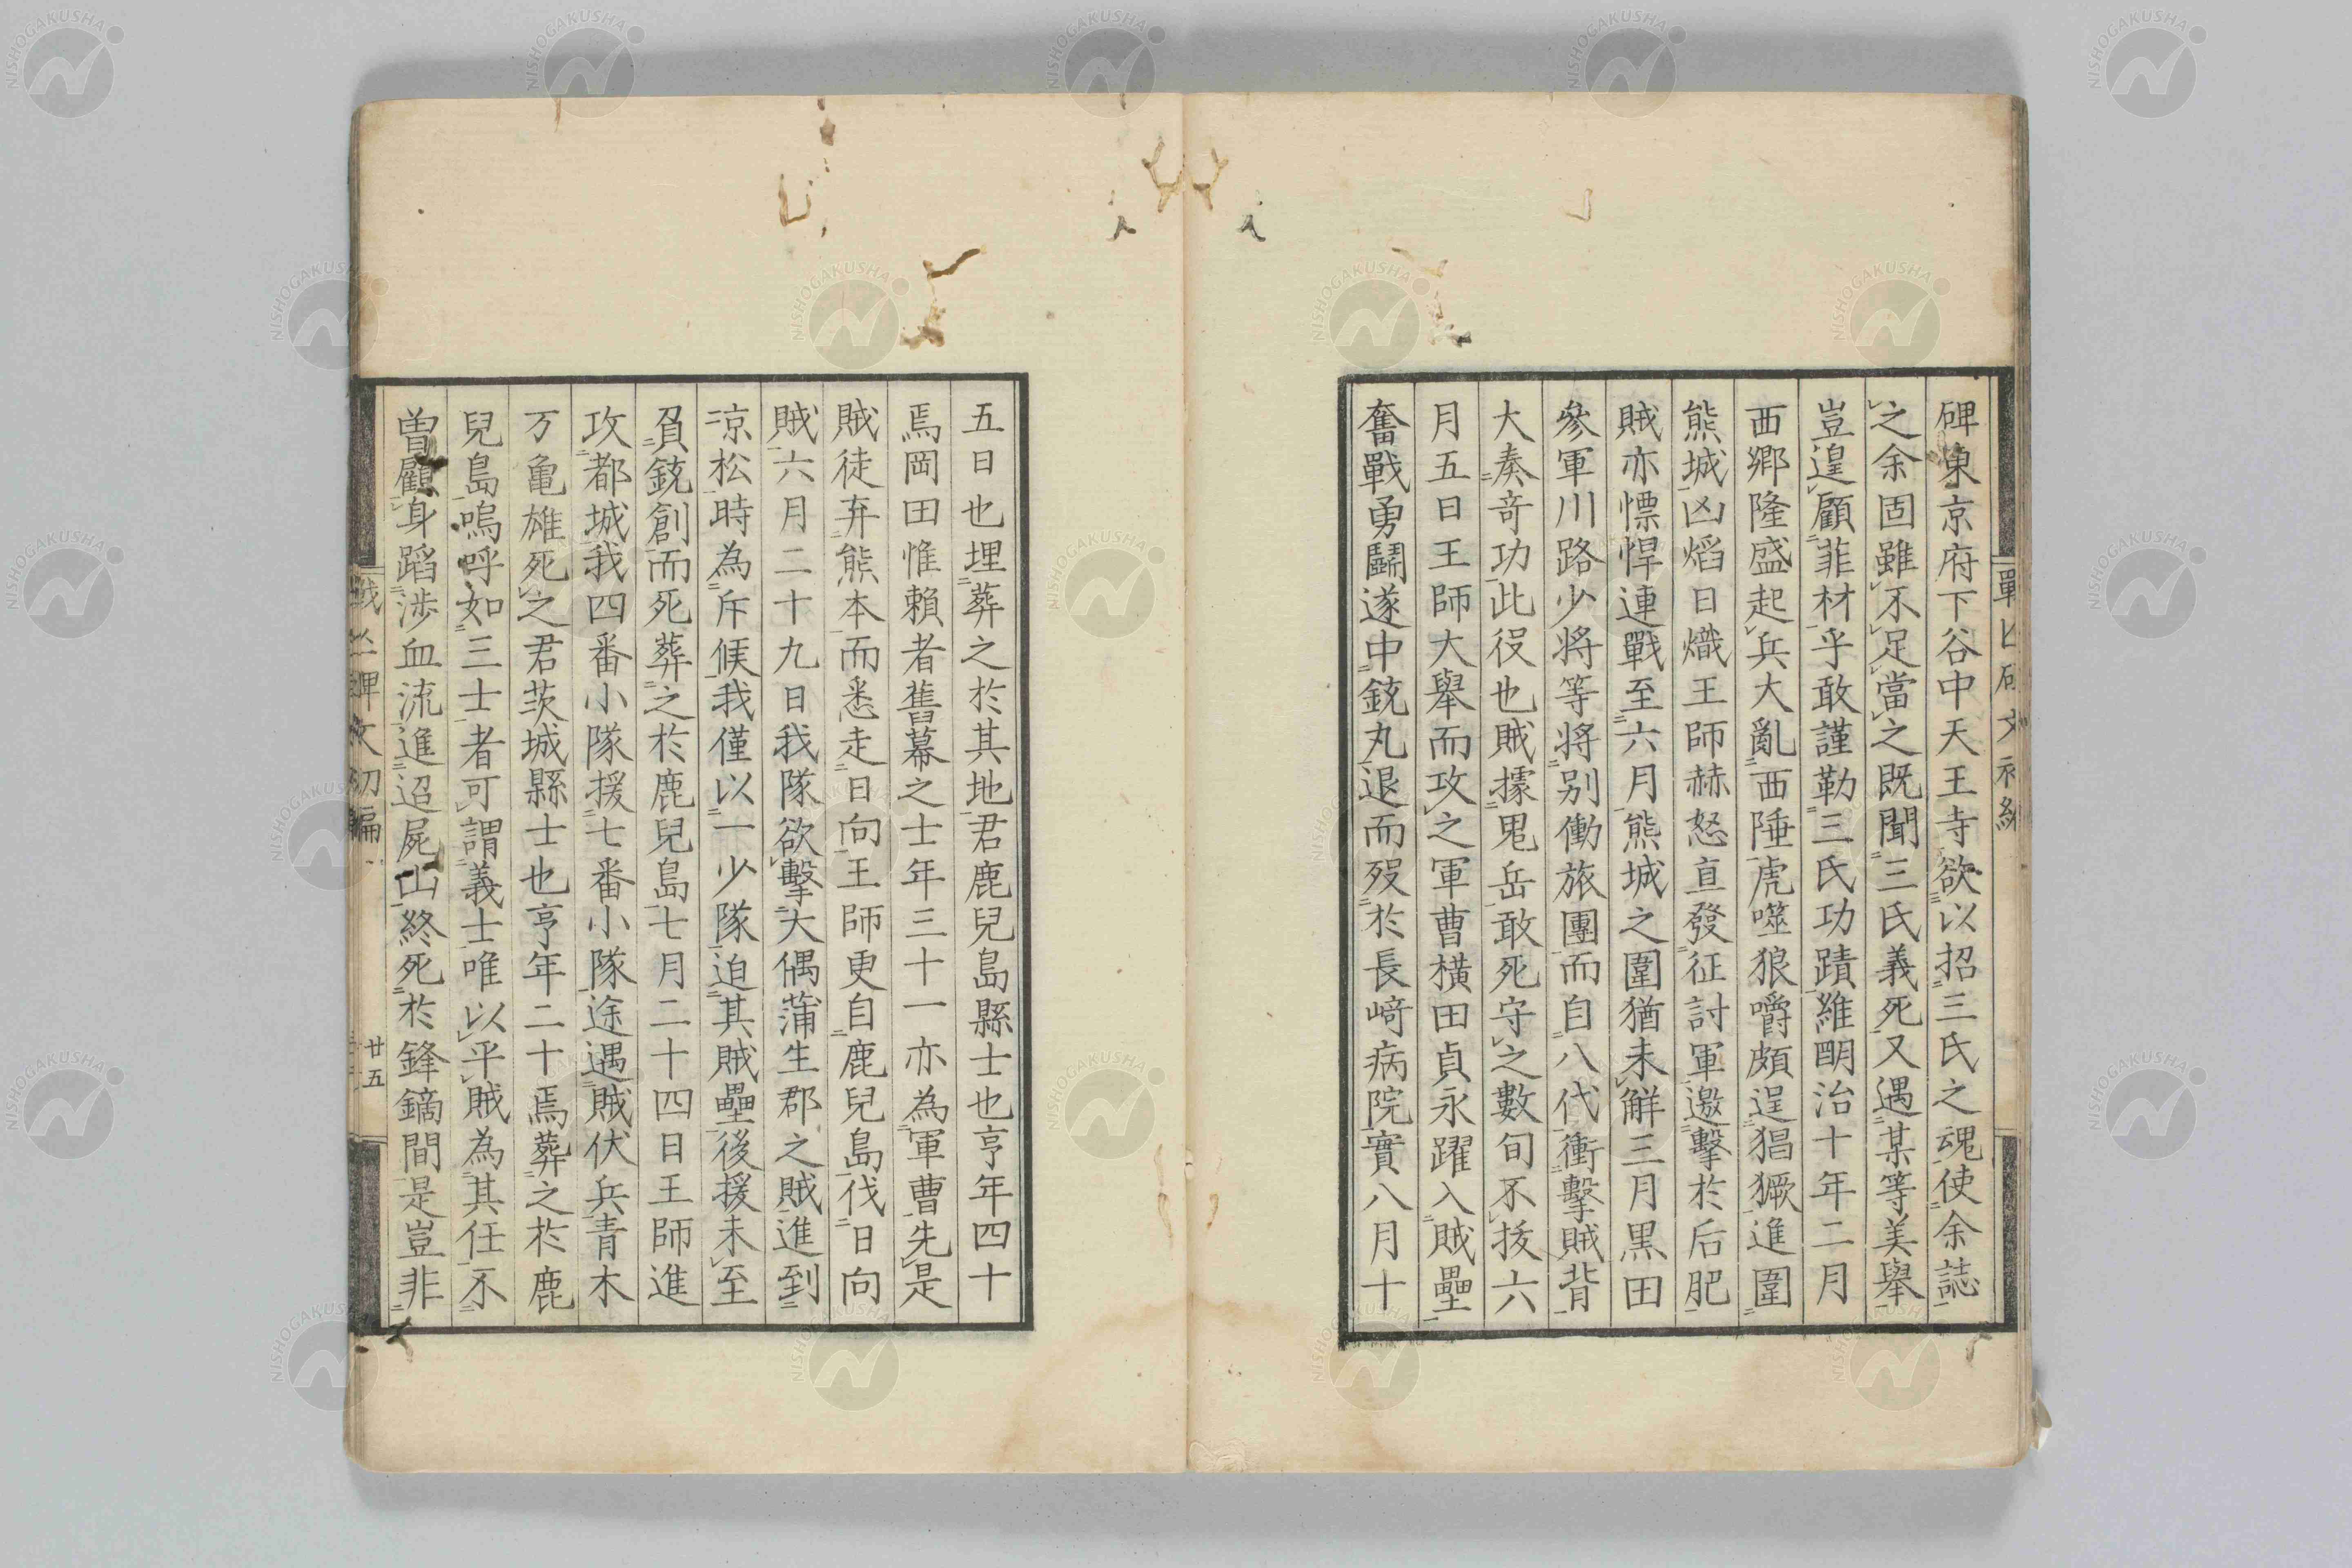 碑東京府下谷中天王寺欲以招三氏之魂使余誌
之余固雖不足當之既聞三氏義死又遇某等美舉
豈遑顧菲材乎敢謹勒三氏功蹟維明治十年二月
西郷隆盛起兵大亂西陲虎噬狼嚼頗逞猖獗進圍
熊城凶熖日熾王師赫怒直發征討軍邀擊於后肥
賊亦慓悍連戰至六月熊城之圍猶未解三月黒田
參軍川路少将等将别働旅團而自八代衝擊賊背
大奏竒功此役也賊據鬼岳敢死守之數旬不拔六
月五日王師大舉而攻之軍曹横田貞永躍入賊壘
奮戰勇鬪遂中銃丸退而歿於長﨑病院實八月十
五日也埋葬之於其地君鹿兒島縣士也亨年四十
焉岡田惟賴者舊幕之士年三十一亦為軍曹先是
賊徒弃熊本而悉走日向王師更自鹿兒島伐日向
賊六月二十九日我隊欲擊大偶蒲生郡之賊進到
凉松時為斥候我僅以一少隊迫其賊壘後援未至
負銃創而死葬之於鹿兒島七月二十四日王師進
攻都城我四番小隊援七番小隊途遇賊伏兵青木
万亀雄死之君茨城縣士也亨年二十焉葬之於鹿
兒島嗚呼如三士者可謂義士唯以平賊為其任不
曽顧身蹈渉血流進迢屍山終死於鋒鏑間是豈非
戰亾碑文初編
廿五